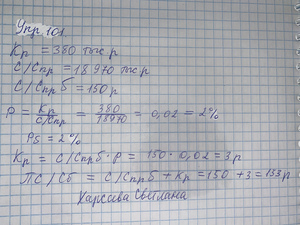 Упр 101
Кр = 380 тыс р
С/Спр = 18970 тыс р
С/Спр б = 150р
Р = Кр/С/Спр = 380/18970 = 0,02 = 2%
Рб = 2%
Кр = С/Спрб · Р = 150 · 0,02 = 3р
ПС/Сб = С/Спрб + Кр = 150 + 3 = 153р
Карсаева Светлана